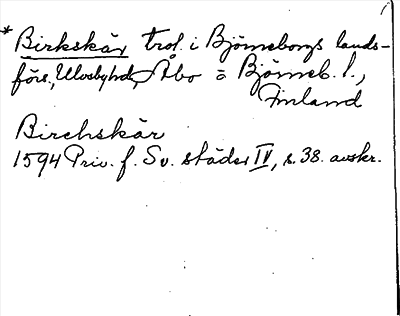 * Birkskär trol. i Björneborgs lands-
förs., Ulvsbyhd, Åbo o Björneb. l.,
Finland
Birchskär
1594 Priv. f. Sv. städer IV, s. 38. avskr.